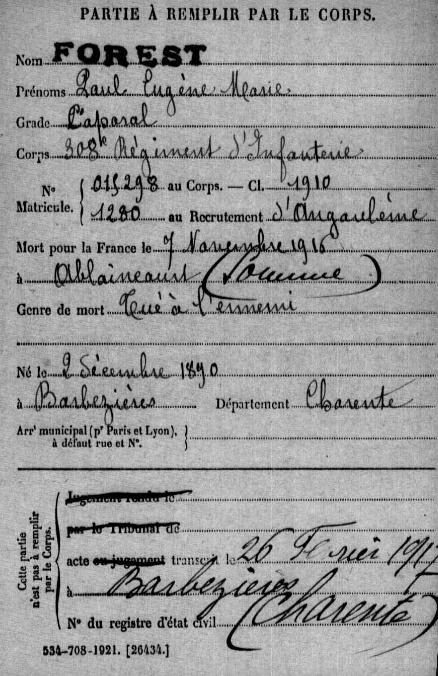 PARTIE À REMPLIR PAR LE CORPS.
Nom FOREST
Prénoms Paul Eugène Marie
Grade Caporal
Corps 308e Régiment d'Infanterie
N° Matricule. { 015.298 au Corps. — Cl. 1910
1280 au Recrutement d'Angoulême
Mort pour la France le 7 Novembre 1916
à Ablaincourt (Somme)
Genre de mort Tué à l'ennemi
Né le 2 Décembre 1890
à Barbezières Département Charente
Arrt municipal (pr Paris et Lyon), à défaut rue et N°. {
Cette partie n'est pas à remplir par le Corps.
Jugement rendu le
par le Tribunal de
acte ou jugement transcrit le 26 Février 1917
à Barbezières (Charente)
N° du registre d'état civil
534-708-1921. [26434.]